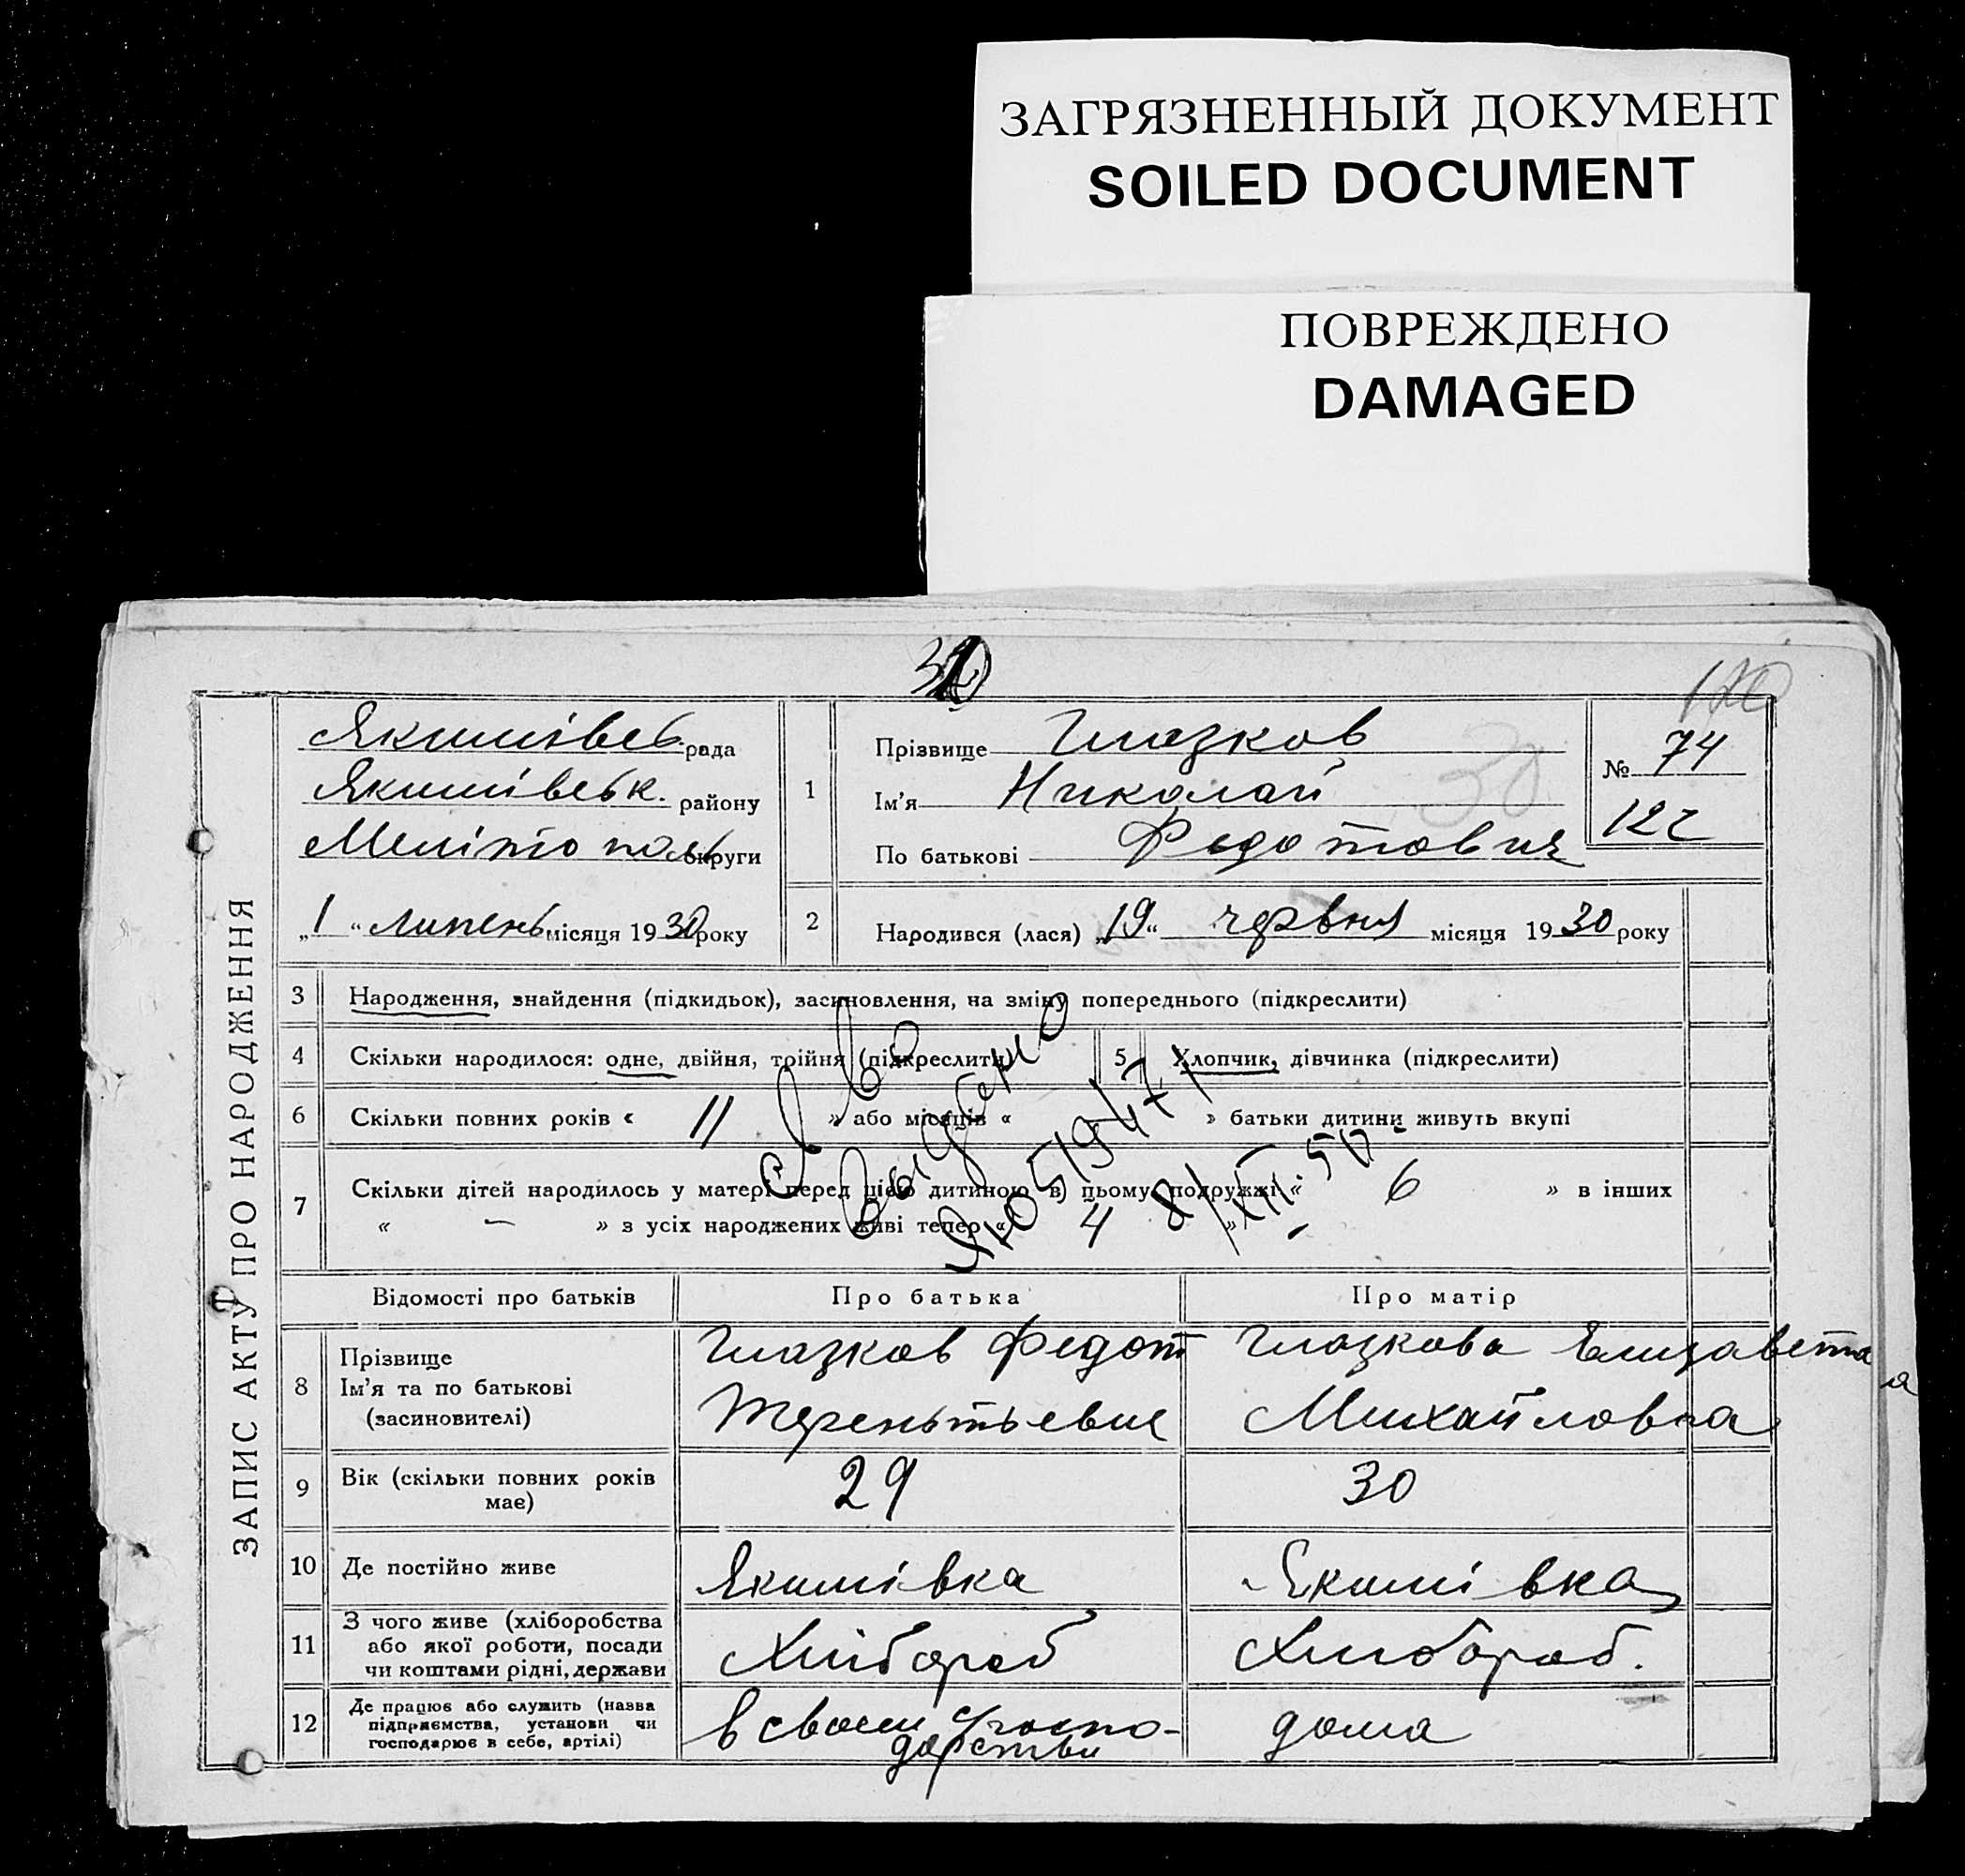 ЗАГРЯЗНЕННЫЙ ДОКУМЕНТ
SOILED DOCUMENT
ПОВРЕЖДЕНО
DAMAGED
ЗАПИС АКТУ ПРО НАРОДЖЕННЯ
Якимівсь. рада
Якимівськ. району
Меліто поль округи
„1“ липень місяця 1930 року
1
Прізвище Глазков
Ім’я Николай
По батькові Федотович
№ 74
122
30
2 Народився (лася) „19“ червня місяця 1930 року
3 Народження, знайдення (підкидьок), засиновлення, на зміну попереднього (підкреслити)
4 Скільки народилося: одне, двійня, трійня (підкреслити)
5 Хлопчик, дівчинка (підкреслити)
6 Скільки повних років « 11 » або місяців « » батьки дитини живуть вкупі
7 Скільки дітей народилось у матері перед цією дитиною в цьому подружжі « 6 » в інших
« – » з усіх народжених живі тепер « 4 »
Выдбено
ЯЮ 519471
8/XII.50
Відомості про батьків
Про батька
Про матір
8 Прізвище
Ім’я та по батькові
(засиновителі)
Глазков Федот
Терентьевич
Глазкова Елизавета
Михайловна
9 Вік (скільки повних років
має)
29
30
10 Де постійно живе
Якимівка
Якимівка
11 З чого живе (хліборобства
або якої роботи, посади
чи коштами рідні, держави
Хлібороб
Хлібороб.
12 Де працює або служить (назва
підприємства, установи чи
господарює в себе, артілі)
в своем госпо-
дарстви
дома